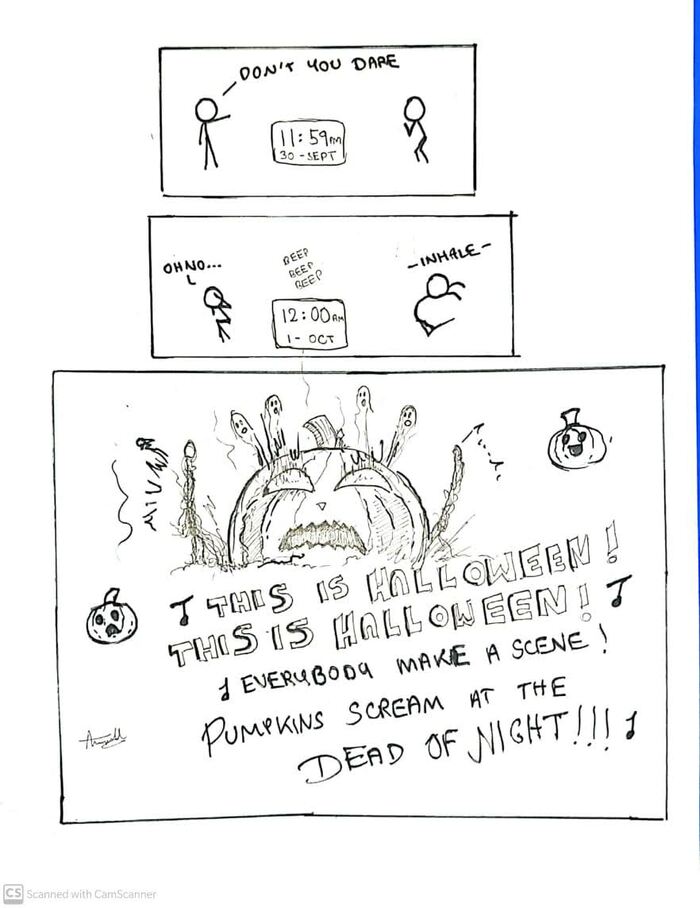 DON'T YOU DARE
11:59PM
30-SEPT
OH NO...
BEEP
BEEP
BEEP
-INHALE-
12:00AM
1-OCT
THIS IS HALLOWEEN!
THIS IS HALLOWEEN!
EVERYBODY MAKE A SCENE!
PUMPKINS SCREAM AT THE
DEAD OF NIGHT!!!
CS Scanned with CamScanner